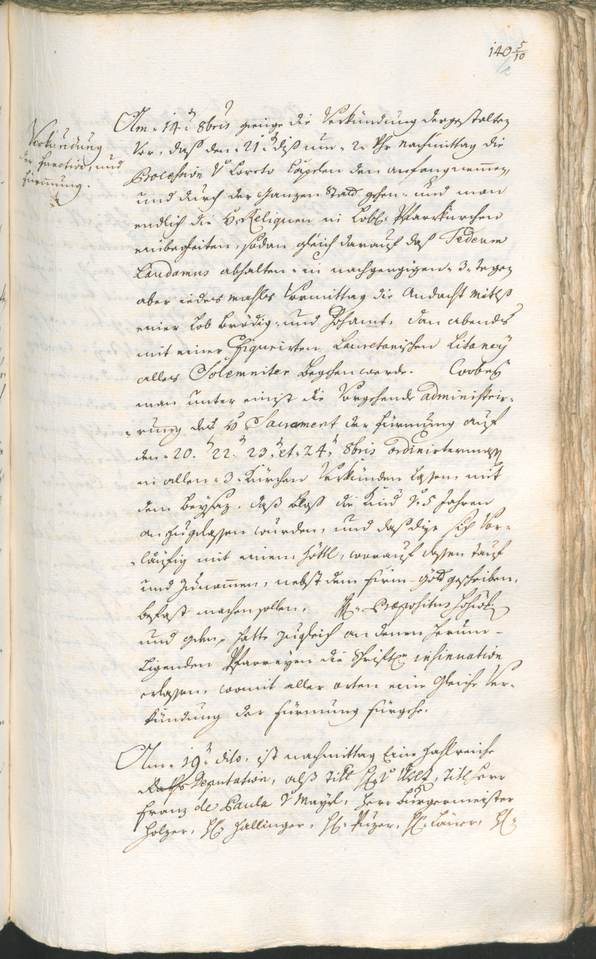 140 5/10
Verkündung
der Function, und
Fürmung.
Am 14ᵗ 8bris gienge die Verkündung dergestalten
vor, daß den 21ᵗ diß um 2 Uhr nachmittag die
Procession V Loreto Capelen den anfang nemmen
und durch die ganzen Statt gehen und man
endlich die V Reliquen in Lobl. Pfarrkürchen
einbegleiten, sodan gleich darauf das Tedeum
Laudamus abhalten in nachgengigen 3 tegen
aber iedes mahles Vormittag die Andacht mitls
einer Lob Brödig und Hohamt, dan abends
mit einer Figurirten Lauretanischen Litaney
alles Solemniter begehen werde.
man unter einist die Vorgehende administri-
rung des V Sacrament der Fürmung auf
den 20. 22. 23. et 24ᵗ 8bris
in allen 3 Kürchen Verkünden lassen, mit
dem Beysaz, daß bloß die Kind V. 5 Jahren
an zugelassen wurden, und daß dise sich Vor-
läufig mit einem Zöttl, worauf dessen Tauf
und Zunammen, nebst dem Firm Göd geschriben,
befast machen sollen. H. Praepositus
und hatte zugleich an denen herum-
ligenden Pfarreyen die Schriftl. insinuation
erlassen, womit aller orten eine gleiche Ver-
kündung der Fürmung fürgehe.
Am 19ᵗ dito, ist nachmittag Eine Zahlreiche
Raths Deputation, alß Titl Titl Herr
Franz de Paula V Mayrl, Herr Bürgermeister
Holzer, H. Hallinger, H. Puzer, H. Lauer, H.